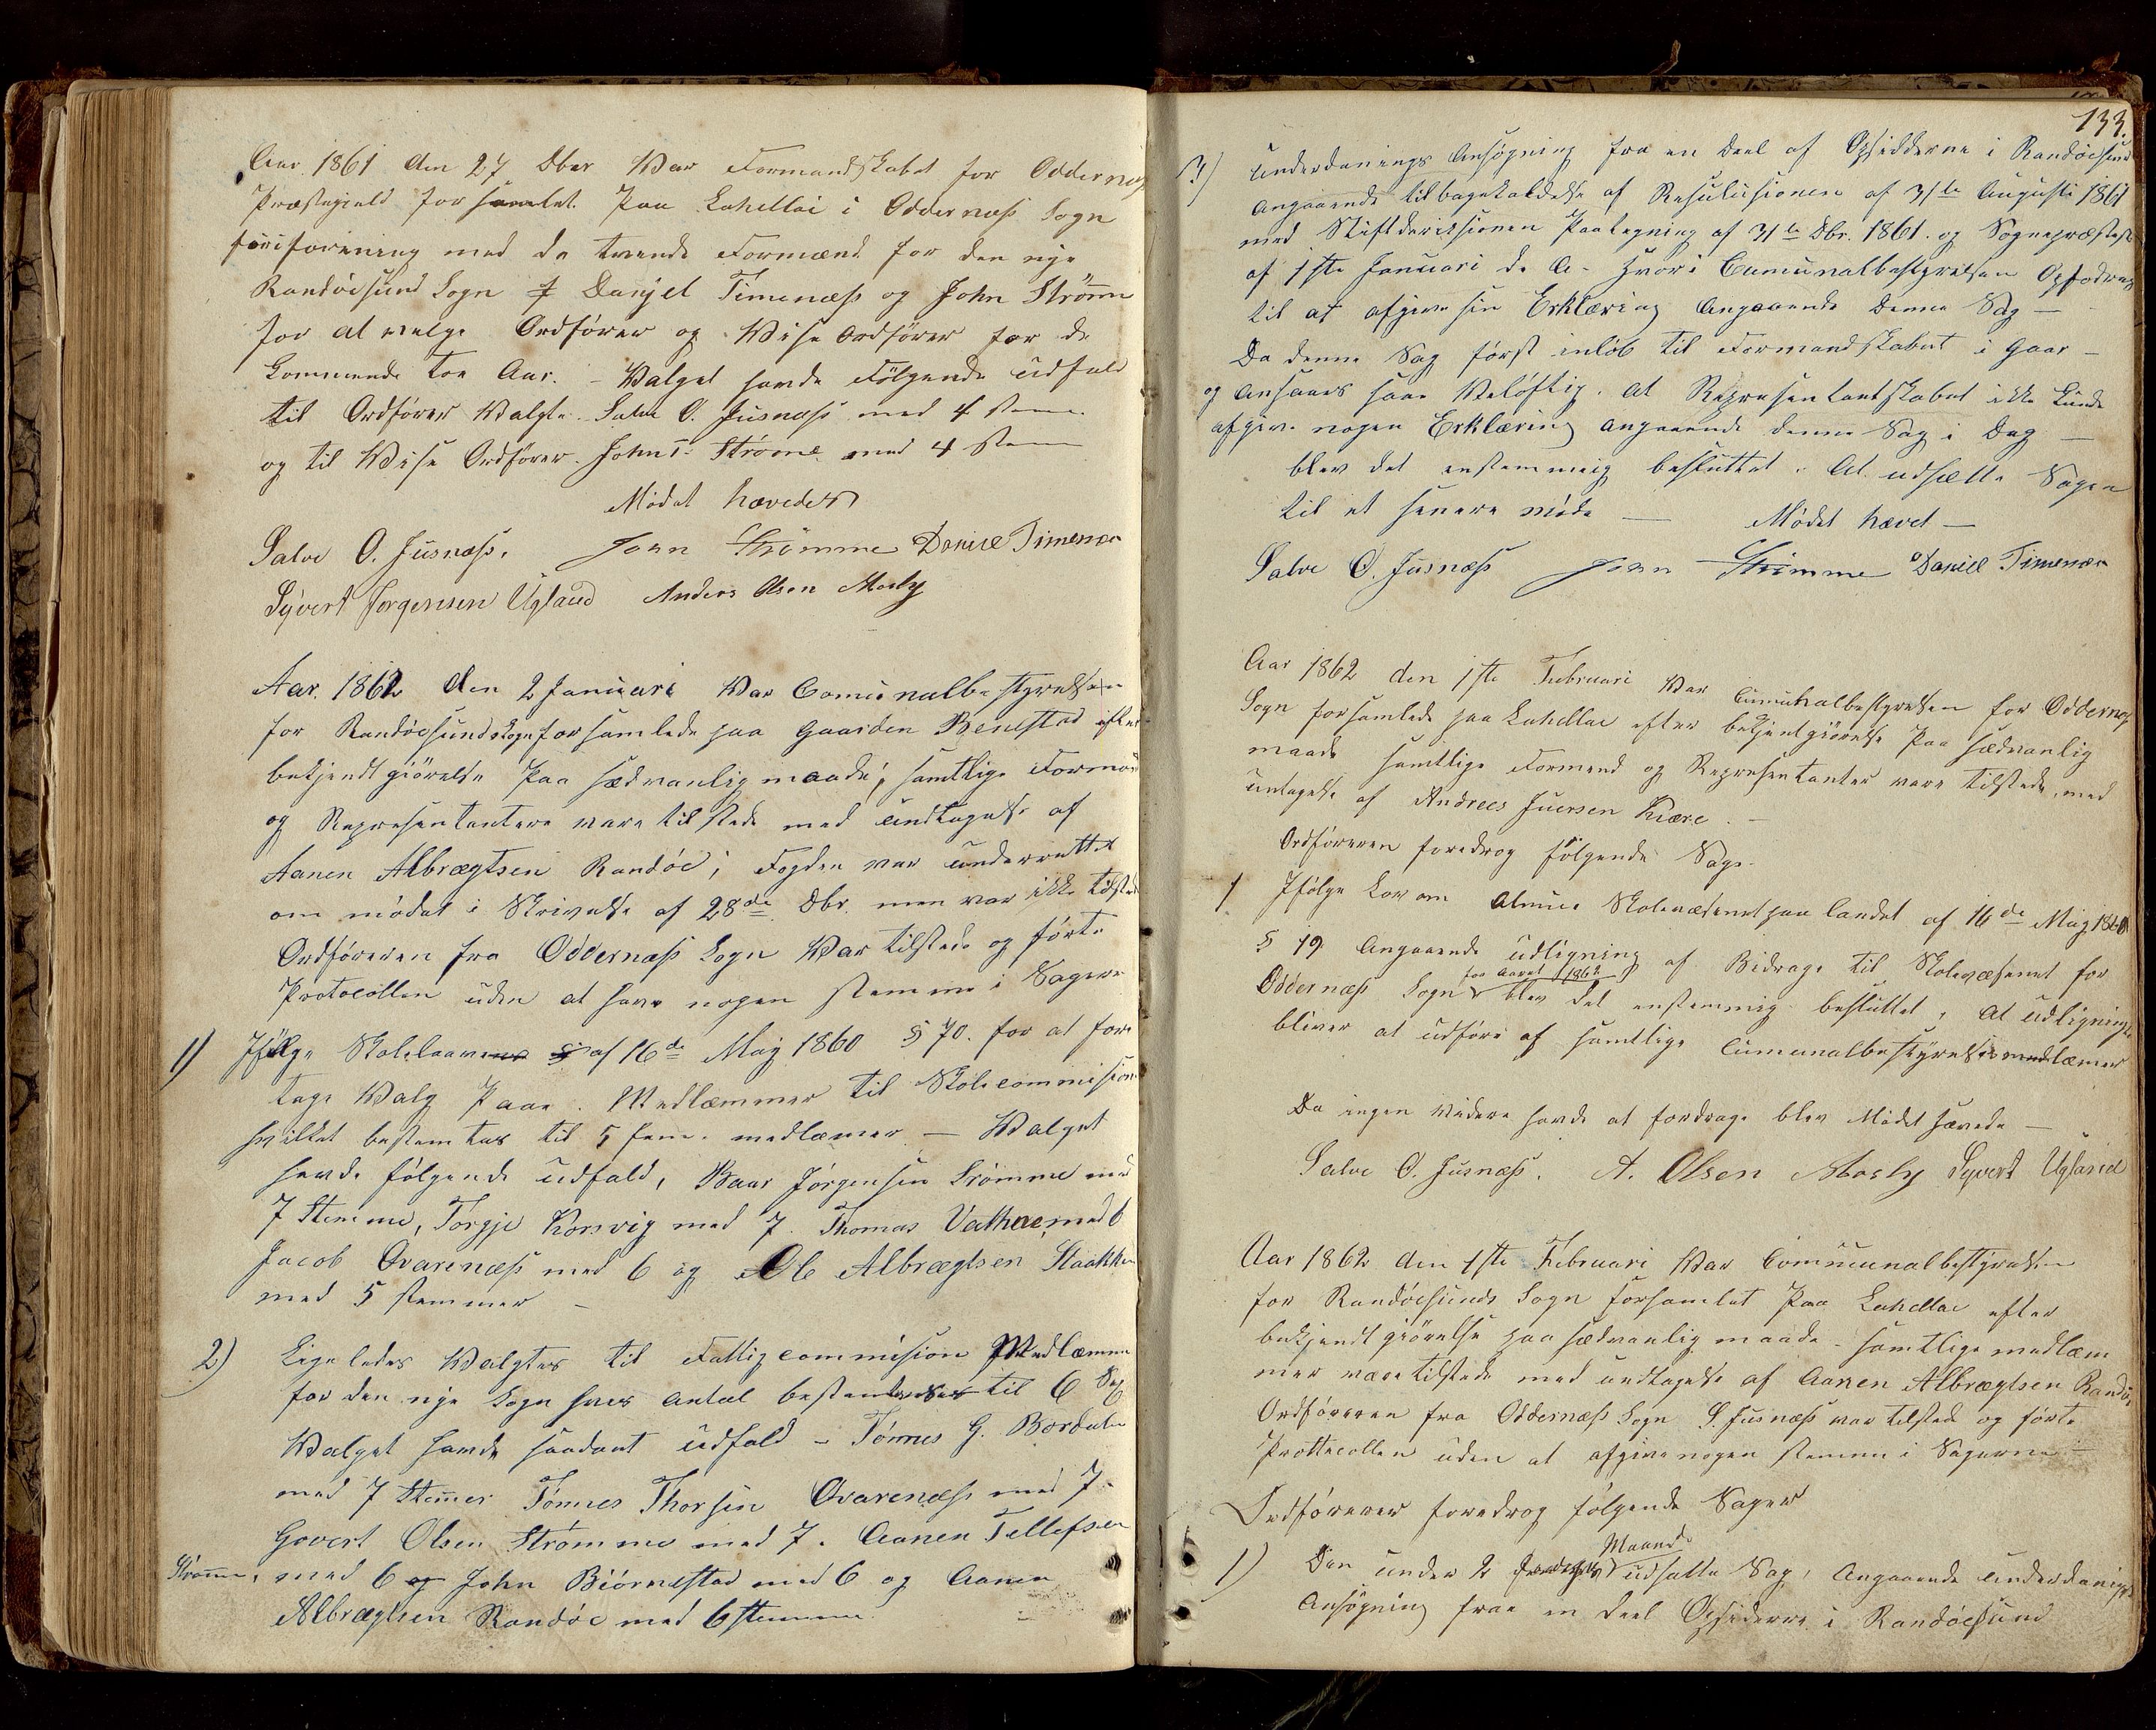 Aar 1861 den 27 Dber War Formandskabet for Oddernæs
Præstegield forsamlet Paa Lahellai i Oddernæs Sogn
foreining med de tvende Formænd for den nye
Randøesund Sogn Danjel Timenæs og John Strømme
for at velge Ordfører og Wise Ordfører for de
kommende toe Aar. - Walget havde Følgende Udfald
til Ordfører Walgte Salve O. Jusnæs med 4 stem
og til Wise Ordfører John T. Strømme med 4 Stem
Mødet hævedes
Salve O. Jusnæs. John Strømme Daniel Timenæs
Syvert Jørgensen Ugland Anders Olsen Mosby
Aar. 1862 den 2 Januari War Comunalbestyrelsen
for Randøesund Sogn forsamlede paa Gaarden Benestad efter
bekjendtgiørelse Paa sædvanlig maade, samtlige Formænd
og Represententere vare tilstede med undtagelse af
Aanen Albrægtsen Randøe; Fogden var underrettet
om mødet i Skrivelse af 28de Dbr. men var ikke tilstede
Ordføreren fra Oddernæs Sogn War tilstede og førte
Protocollen uden at have nogen stemme i Sagerne
1) Ifølge Skoleloven af 16de Maj 1860 § 70. for at fore
tage Walg Paa Medlæmmer til Skolecommision
hvilket bestemtes til 5 fem. medlæmer - Walget
havde følgende udfald, Baar Jørgensen Srømme med
7 Stemme, Torgje Korsvig med 7. Thomas Vathne, med 6
Jacob Qvarenæs med 6 og Ole Albrægtsen Staakken
med 5 stemmer -
2) Ligeledes Walgtes til Fattigcommision Medlæmme
for den nye Sogn hves Antal bestemtes til 6 Sex
Walget havde saadant udfald - Tønnes G. Bordalen
med 7 Stemer Tønnes Thorsen Qvarenæs med 7.
Govert Olsen Strømme med 7. Aanen Tellefsen
Strømme, med 6 og John Biørnestad med 6 og Aanen
Albrægtsen Randøe med 6 stemmer.
133.
3) Underdanings Ansøgning fra en Deel af Opsidderne i Randøesund
Angaaende tilbagekaldelse af Resulusionen af 31te Augusti 1861
med Stiftderiksionen Paategning af 31te Dbr. 1861. og Sognepræstens
af 1ste Januari d. A. hvori Cumunalbestyrelsen Opfodres
til at afgive sin Erklæring Angaaende denne Sag -
Da denne Sag først inløb til Formandskabet i Gaar -
og Ansaaes saa Veløftig. At Representantskabet ikke kunde
afgive nogen Erklæring angaaende denne Sag i Dag -
blev det enstemmig besluttet. At udsætte Sagen
til et senere møde - Mødet hævet -
Salve O. Jusnæs John Strømme Daniel Timenæs
Aar 1862 den 1ste Februari War Cumunalbestyrelsen for Oddernæs
Sogn forsamlede paa Lahellae efter bekjentgiørelse Paa sædvanlig
maade samtlige Formend og Representanter vare tilstede, med
untagelse af Andrees Juersen Kiære. -
Ordføreren foredrog følgende Sage.
1 Ifølge Lov om Almue Skolevæsenet paa landet af 16de Maj 1860
§ 19 Angaaende Udligning af Bidrage til Skolevæsenet for
Oddernæs Sogn for Aaret 1862 blev det enstemmig besluttet, At udligningen
bliver at udføre af samtlige Cumunalbestyrelses medlæmer
Da ingen Videre havde at fordrage blev Mødet hævede -
Salve O. Jusnæs. A. Olsen Mosby Syvert Ugland
Aar 1862 den 1ste Februari War Communalbestyrelsen
for Randøesunds Sogn forsamlet Paa Lahellae efter
bekjendtgiørelse paa sædvanlig maade - samtlige medlæm
mer vare tilstede med undtagelse af Aanen Albrægtsen Randøe
Ordføreren fra Oddernæs Sogn S. Jusnæs var tilstede og førte
Prottecollen uden at afgive nogen stemme i Sagerne -
Ordføreren foredrog følgende Sager
1) Den under 2 Maand udsatte Sag, Angaaende underdanigste
Ansøgning fraa en Deel Opsiderre i Randøesund